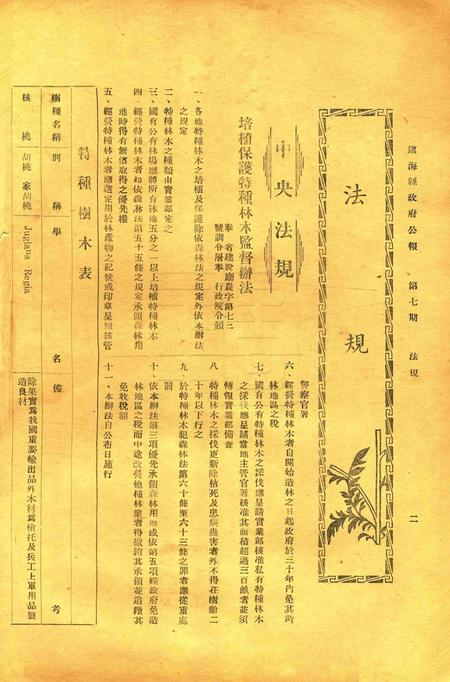 鎮海縣政府公報　第七期　法規　二
法規
中央法規
培植保護特種林木監督辦法
奉　省建設廳農字第七三
號訓令層奉　行政院令頒
一、各地特種林木之培植及保護除依森林法之規定外依本辦法
之規定
二、特種林木之種類由實業部定之
三、國有公有林場應將所有林地五分之一以上培植特種林木
四、經營特種林木者如依森林法第五十五條之規定承領森林用
地時得有無償取得之優先權
五、經營特種林木者應選定用於林產物之記號或印章呈報該管
警察官署
六、經營特種林木者自開始造林之日起政府於三十年內免其造
林地區之稅
七、國有公有特種林木之採伐應呈請實業部核准私有特種林木
之採伐應呈請當地主管官署核准其面積超過三百畝者並須
轉報實業部備查
八、特種林木之採伐更新除枯死及患病蟲害者外不得在樹齡二
十年以下行之
九、於特種林木犯森林法第六十條至六十三條之罪者應從重處
罰
十、依本辦法第三項優先承領森林用地或依第五項經政府免造
林地區之稅而中途改營他種林業者得撤銷其承領並追繳其
免收稅額
十一、本辦法自公布日施行
特種樹木表
樹種名稱　別稱　學名　備考
核桃　胡桃　家胡桃　Juglans Regia　除果實爲我國重要輸出品外木材爲槍托及兵工上軍用品製
造良材